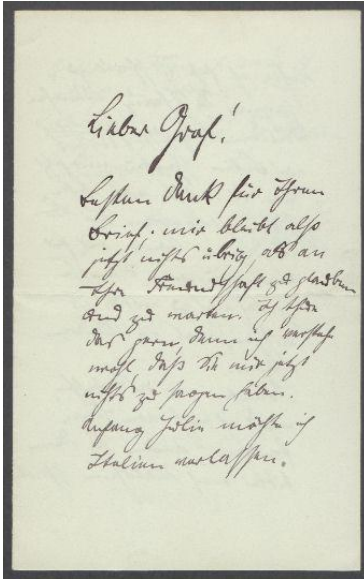 Lieber Graf!
Besten Dank für Ihren
Brief. mir bleibt also
jetzt nichts übrig als an
Ihre Freundschaft zu glauben
und zu warten. Ich thue
das gern, denn ich verstehe
wohl, daß Sie mir jetzt
nichts zu sagen haben.
Anfang Juli möchte ich
Italien verlassen.